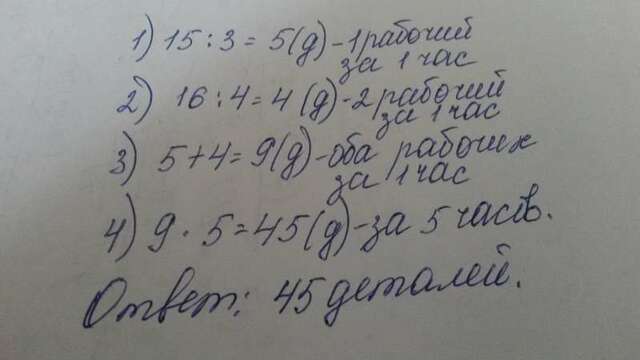 1) 15:3=5(д)-1 рабочий
за 1 час
2) 16:4=4(д)-2 рабочий
за 1 час
3) 5+4=9(д)-оба рабочих
за 1 час
4) 9·5=45(д)-за 5 часів.
Ответ: 45 деталей.